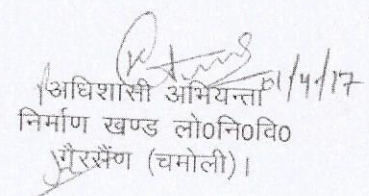 01/4/17
अधिशासी अभियन्ता
निर्माण खण्ड लो0नि0वि0
गैरसैंण (चमोली)।